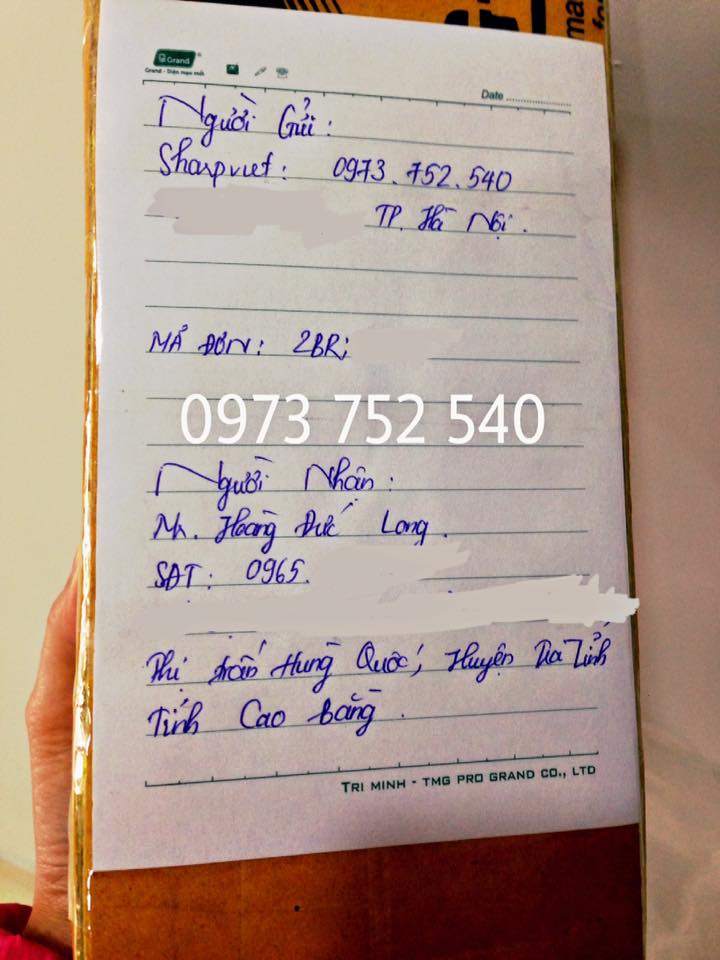 Grand
Grand - Diện mạo mới
Date
Người Gửi:
Sharpviet: 0973.752.540
TP. Hà Nội.
MÃ ĐƠN: 2BRi
0973 752 540
Người Nhận:
Mr. Hoàng Đức Long.
SĐT: 0965.
Thị trấn Hùng Quốc, Huyện Trà Lĩnh
Tỉnh Cao bằng.
TRI MINH - TMG PRO GRAND CO., LTD